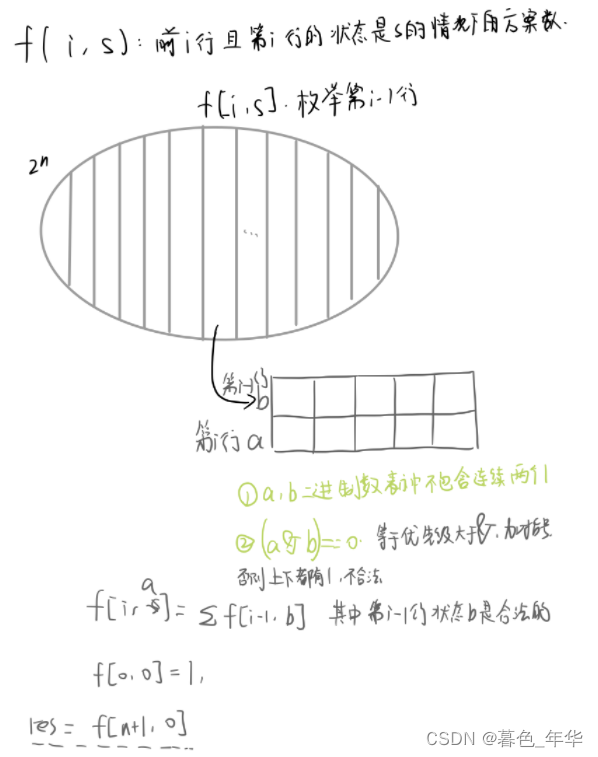 f(i,s):前i行且第i行的状态是s的情况下的方案数.
f[i,s].枚举第i-1行
2^n
...
第i-1行
b
第i行 a
① a,b二进制数表中不包含连续两个1
② (a&b)==0. 等于优先级大于&,加括号
否则上下都有1,不合法
a
f[i,s]=∑f[i-1,b] 其中第i-1行状态b是合法的
f[0,0]=1,
res=f[n+1,0]
CSDN @暮色_年华